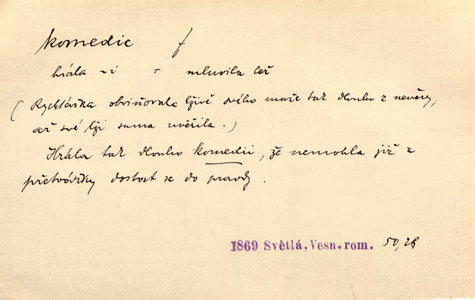 komedie f
hrála ~i = mluvila lež
(Rychtářka obviňovala lživě svého muže tak dlouho z nevěry,
až své lži sama uvěřila.)
Hrála tak dlouho komedii, že nemohla již z
přetvářky dostat se do pravdy.
1869 Světlá, Vesn. rom. 50,26